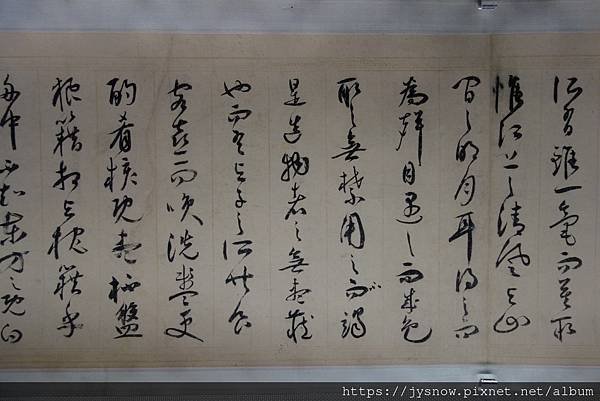 所有雖一毫而莫取
惟江上之清風與山
間之明月耳得之而
為聲目遇之而成色
取之無禁用之不竭
是造物者之無盡藏
也而吾與子之所共食
客喜而笑洗盞更
酌肴核既盡杯盤
狼籍相與枕籍乎
舟中不知東方之既白
https://jysnow.pixnet.net/album